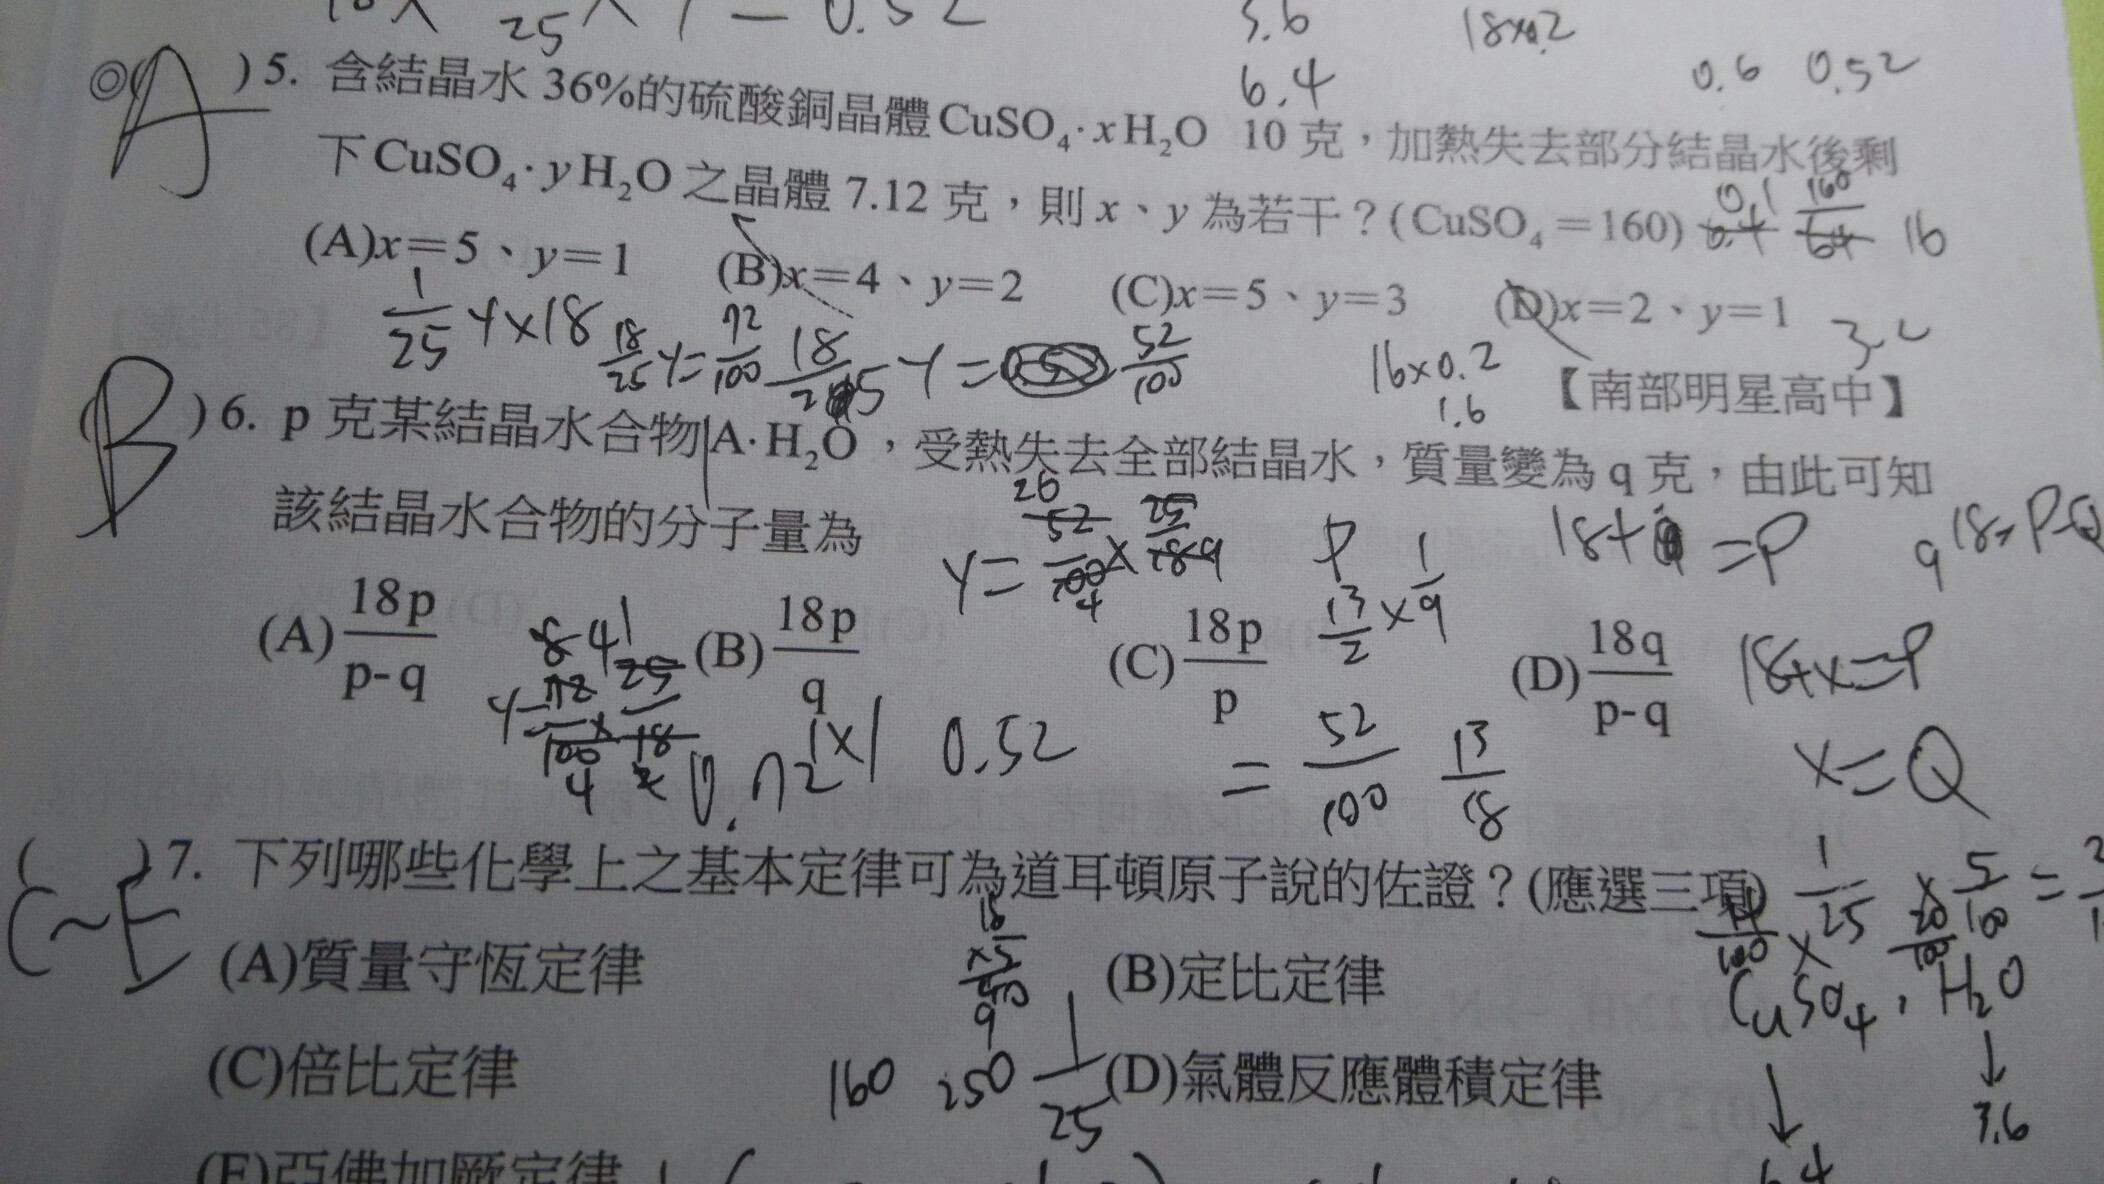 18× 25 × 1 = 0.52
3.6
18×0.2
6.4
0.6 0.52
A
◎( )5. 含結晶水 36%的硫酸銅晶體 CuSO₄·xH₂O 10 克,加熱失去部分結晶水後剩
下 CuSO₄·yH₂O 之晶體 7.12 克,則 x、y 為若干?(CuSO₄=160)
0.1 160
0.4 64 16
(A)x=5、y=1 (B)x=4、y=2 (C)x=5、y=3 (D)x=2、y=1
1/25 Y×18 18/25 Y=72/100 18/25 Y= 52/100
16×0.2
1.6
【南部明星高中】
B
( )6. p 克某結晶水合物 A·H₂O,受熱失去全部結晶水,質量變為 q 克,由此可知
該結晶水合物的分子量為
26
Y= 52/100 × 25/18 9
4
P
13/2 × 1/9
18+ =P
9 18=P-Q
(A) 18p/p-q (B) 18p/q (C) 18p/p (D) 18q/p-q
18+x=P
x=Q
Y= 72/100 × 25/18
4
0.72 1×1 0.52
= 52/100 13/18
( )7. 下列哪些化學上之基本定律可為道耳頓原子說的佐證?(應選三項)
C~E
1/25 × 5/100 =
(A)質量守恆定律 (B)定比定律
18
×5
90
9
CuSO₄·H₂O
(C)倍比定律 (D)氣體反應體積定律
160 250 1/25
3.6
(E)亞佛加厥定律
6.4